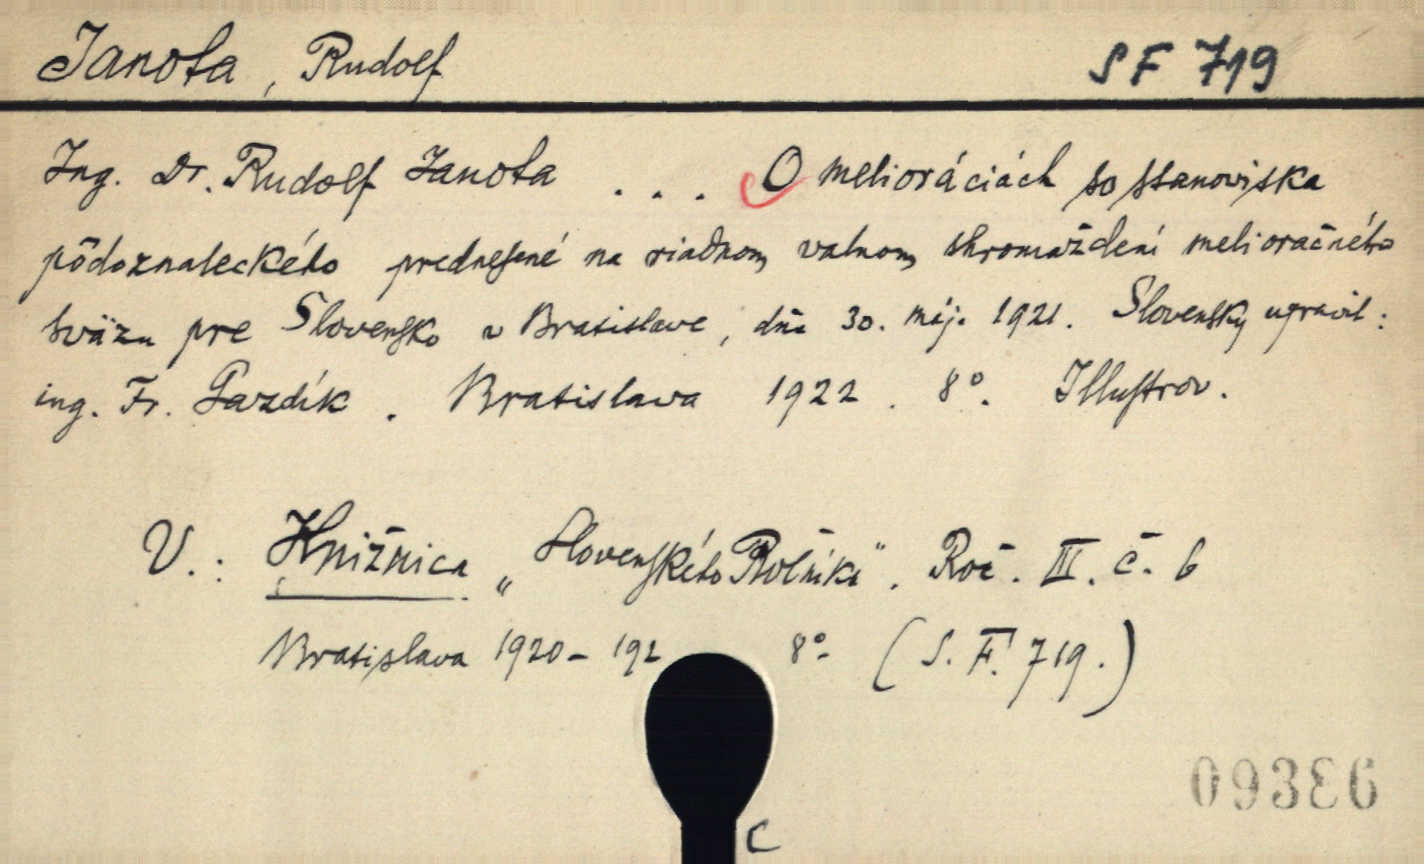 Janota, Rudolf SF 719
Ing. Dr. Rudolf Janota . . . O melioráciách so stanoviska
pôdoznaleckého prednesené na riadnom valnom shromaždení melioračného
sväzu pre Slovensko v Bratislave, dňa 30. máj. 1921. Slovensky upravil:
ing. Fr. Gazdík. Bratislava 1922. 8°. Illustrov.
V.: Knižnica „Slovenského Rolníka". Roč. III. č. 6
Bratislava 1920 - 192 8°- (S. F. 719.)
09386
C